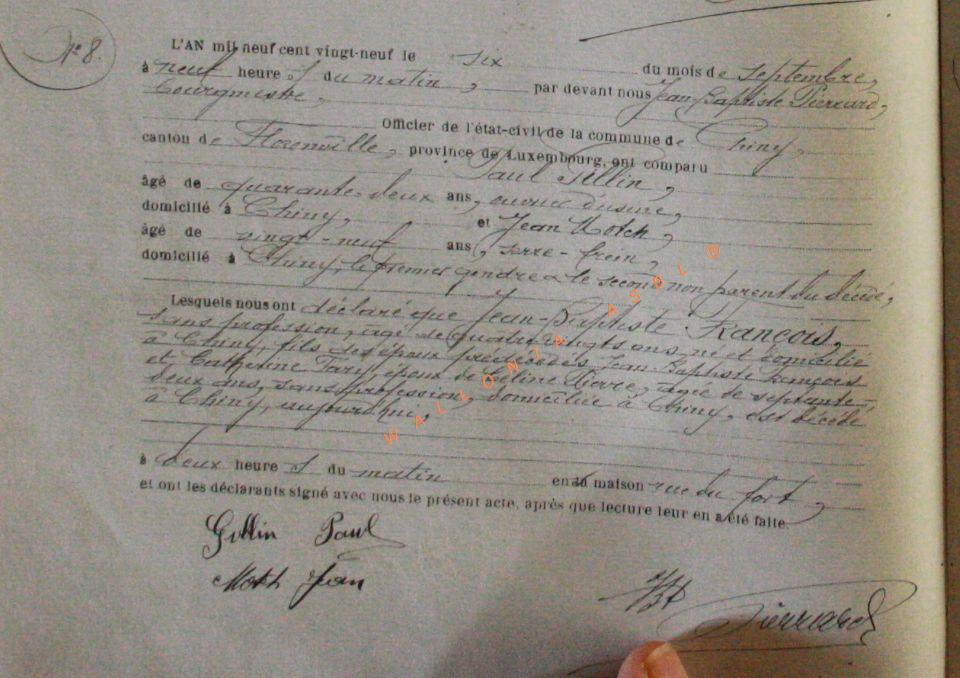 N° 8.
L'AN mil neuf cent vingt-neuf le six du mois de septembre,
à neuf heures du matin, par devant nous Jean-Baptiste Pierrard,
bourgmestre,
Officier de l'état-civil de la commune de Chiny,
canton de Florenville, province de Luxembourg, ont comparu
Paul Gillin,
âgé de quarante-deux ans, ouvrier d'usine,
domicilié à Chiny, et Jean Moth,
âgé de vingt-neuf ans, serre-frein,
domicilié à Chiny, le premier gendre & le second non parent du décédé,
Lesquels nous ont déclaré que Jean-Baptiste François,
sans profession, âgé de quatre vingts ans, né et domicilié
à Chiny, fils des époux prédécédés Jean-Baptiste François
et Catherine époux de Céline Pierre, âgée de septante-
deux ans, sans profession, domiciliée à Chiny, est décédé
à Chiny, aujourd'hui,
à deux heures du matin en sa maison rue du fort,
et ont les déclarants signé avec nous le présent acte, après que lecture leur en a été faite.
Gillin Paul
Moth Jean
JBt Pierrard
WALLONIA ASBL ©